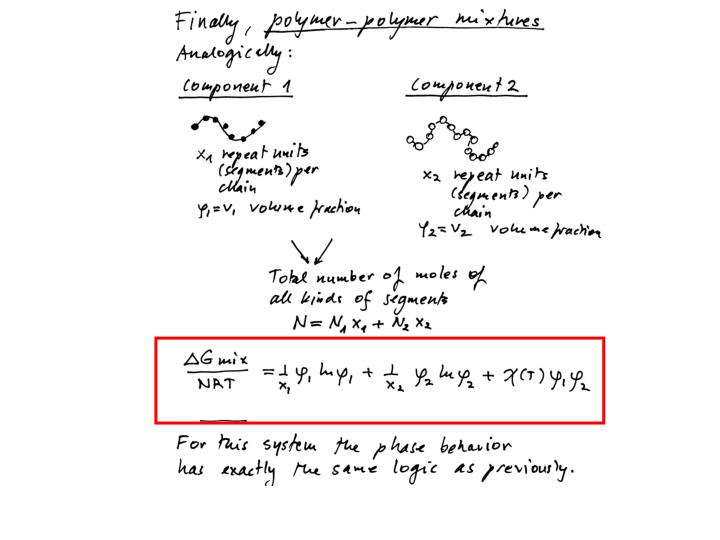 Finally, polymer-polymer mixtures
Analogically:
Component 1
x₁ repeat units
(segments) per
chain
φ₁=v₁ volume fraction
Component 2
x₂ repeat units
(segments) per
chain
φ₂=v₂ volume fraction
Total number of moles of
all kinds of segments
N = N₁x₁ + N₂x₂
ΔGmix/NRT = 1/x₁ φ₁ ln φ₁ + 1/x₂ φ₂ ln φ₂ + χ(T) φ₁φ₂
For this system the phase behavior
has exactly the same logic as previously.